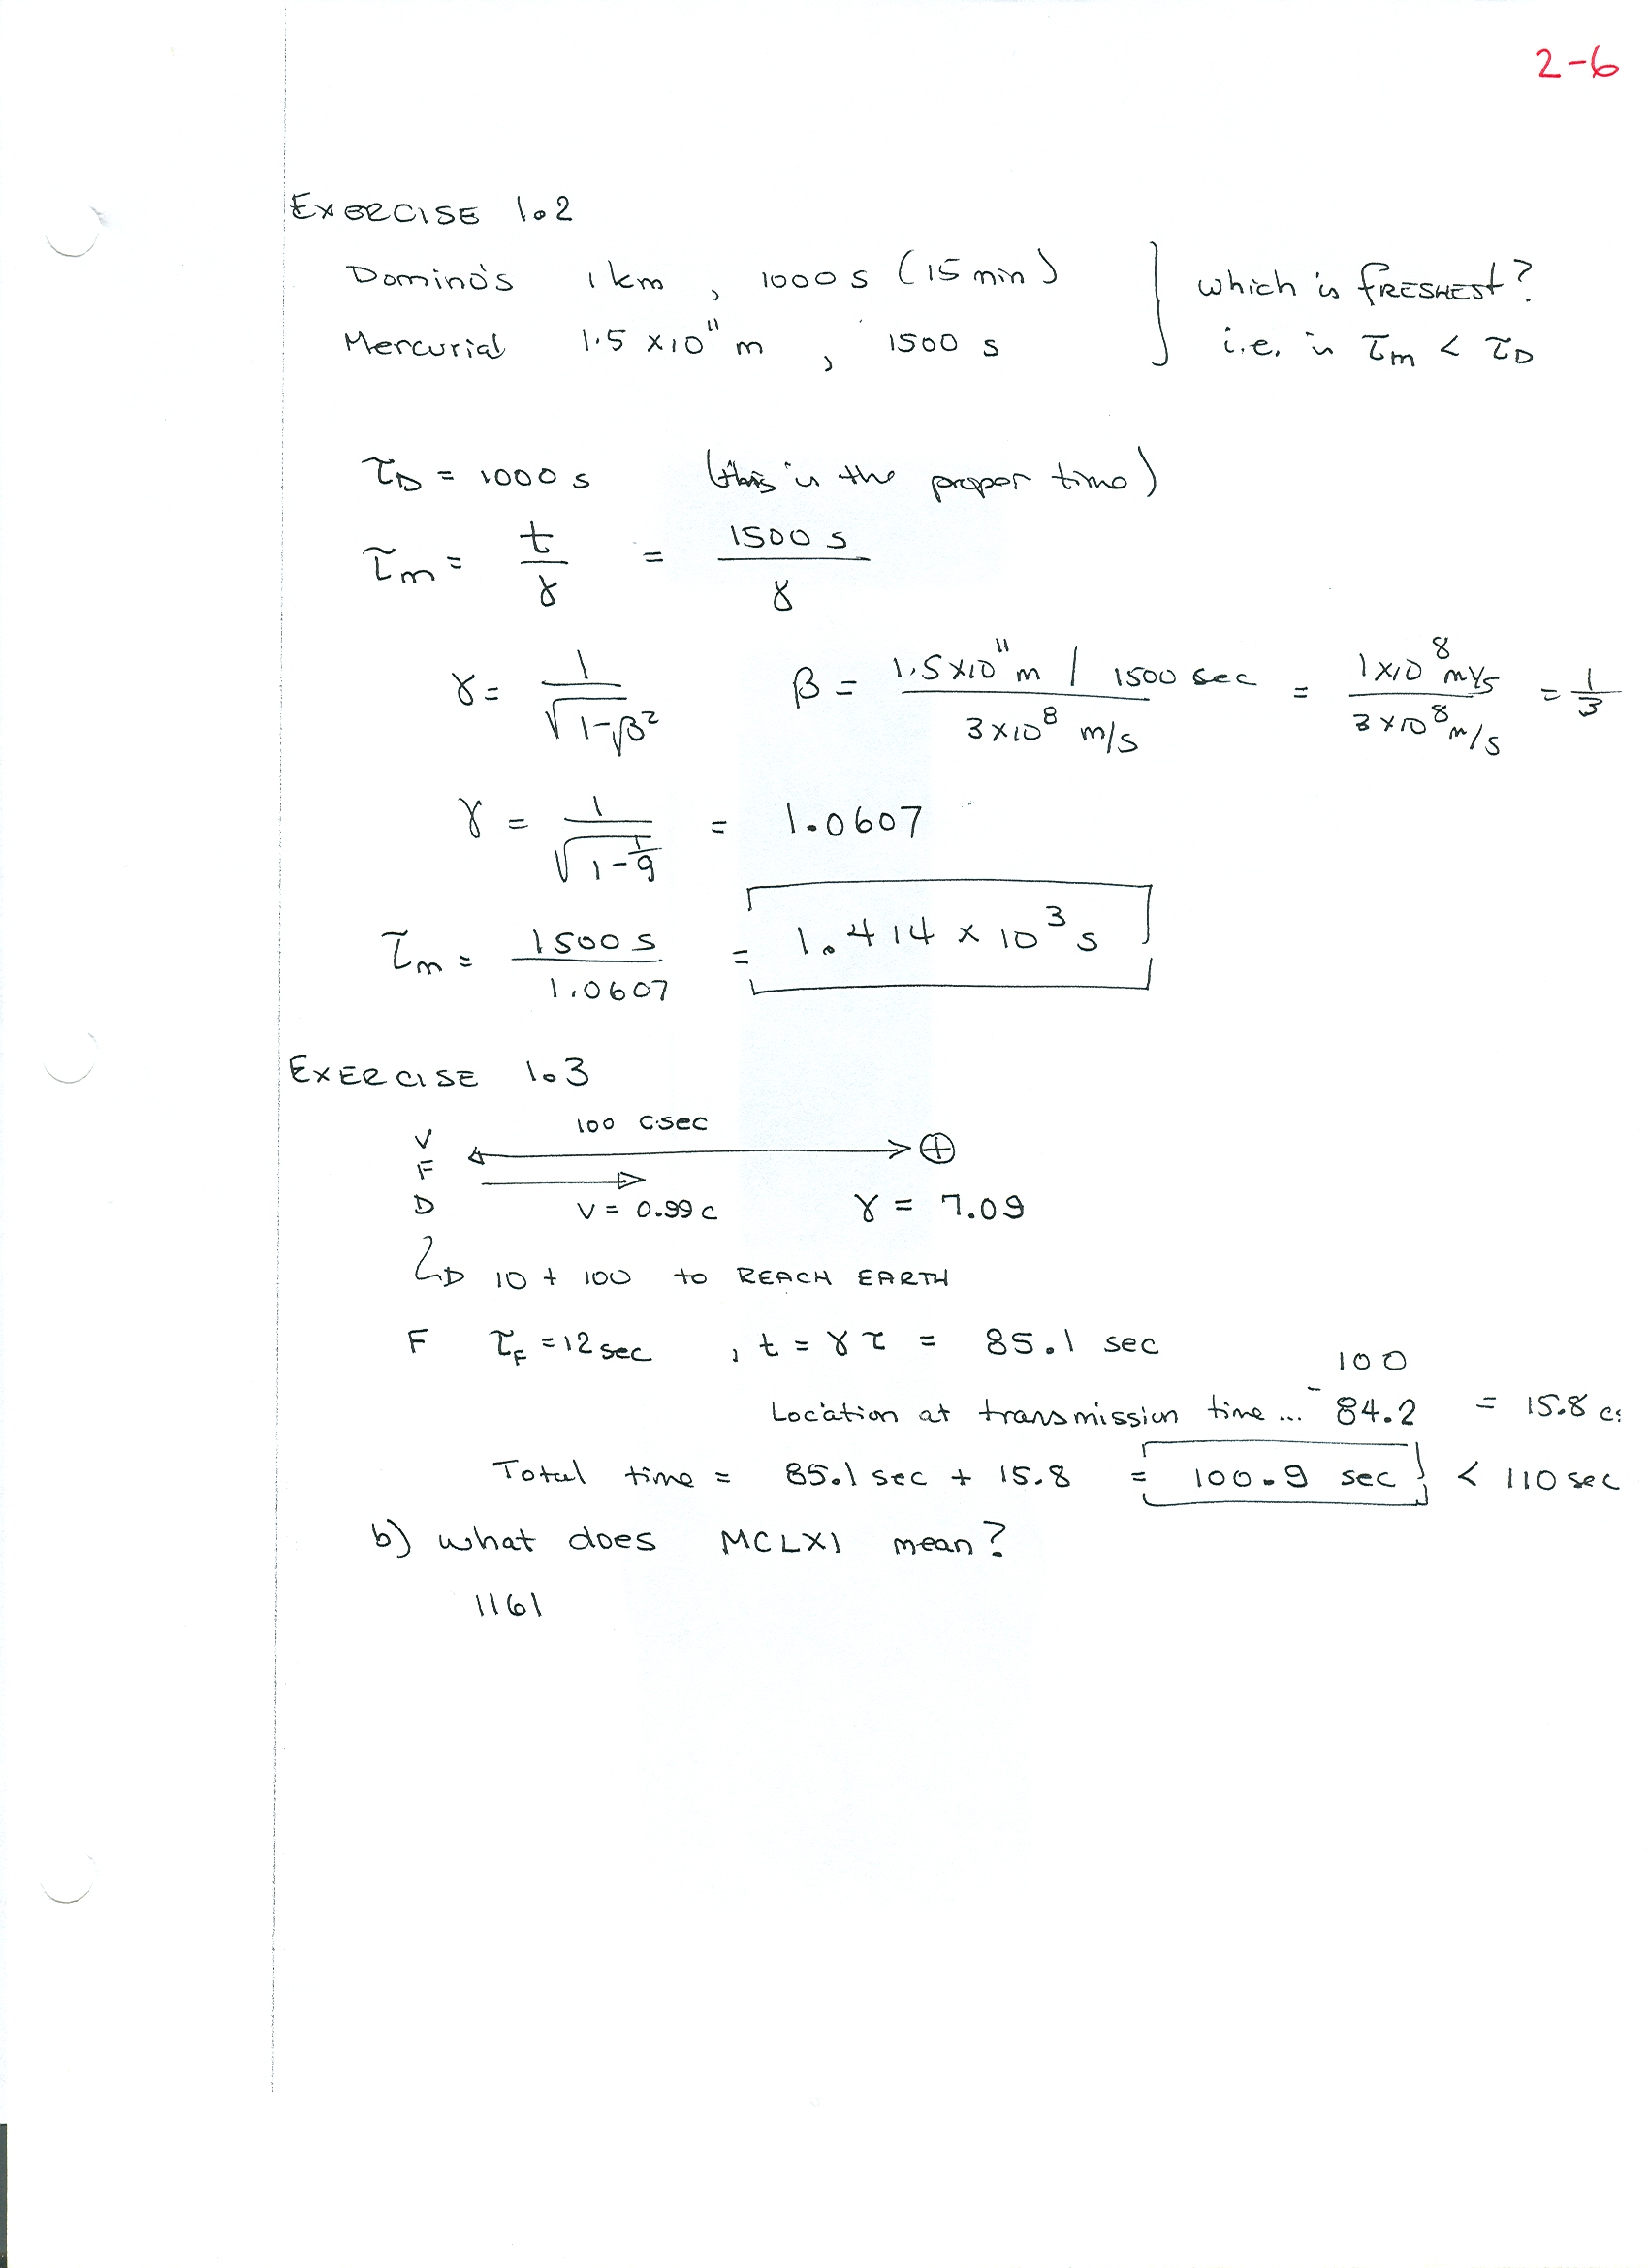 2-6
EXERCISE 1.2
Domino's 1 km , 1000 s (15 min) } which is FRESHEST?
Mercurial 1.5 x10^11 m , 1500 s i.e. is τm < τD
τD = 1000 s (this is the proper time)
τm = t/γ = 1500 s/γ
γ = 1/√(1-β²) β = (1.5x10^11 m / 1500 sec)/(3x10^8 m/s) = (1x10^8 m/s)/(3x10^8 m/s) = 1/3
γ = 1/√(1-1/9) = 1.0607
τm = 1500 s/1.0607 = 1.414 x 10^3 s
EXERCISE 1.3
100 c·sec
V
F
D v = 0.99 c γ = 7.09
10 + 100 to REACH EARTH
F τF = 12 sec , t = γ τ = 85.1 sec
100
Location at transmission time... - 84.2 = 15.8 c
Total time = 85.1 sec + 15.8 = 100.9 sec < 110 sec
b) what does MCLXI mean?
1161